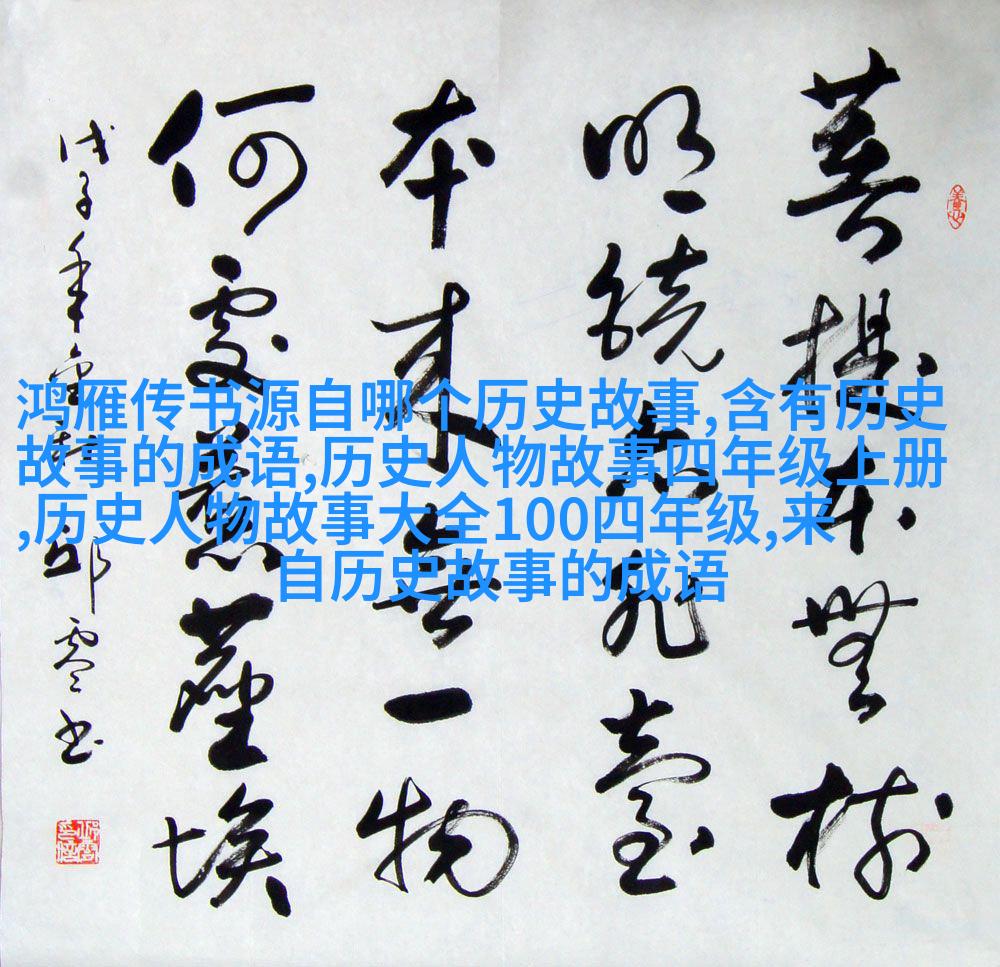 菩提本無樹
明鏡亦非臺
本来無一物
何處惹塵埃
戊子年邱零书
鸿雁传书源自哪个历史故事,含有历史
故事的成语,历史人物故事四年级上册
,历史人物故事大全100四年级,来
自历史故事的成语